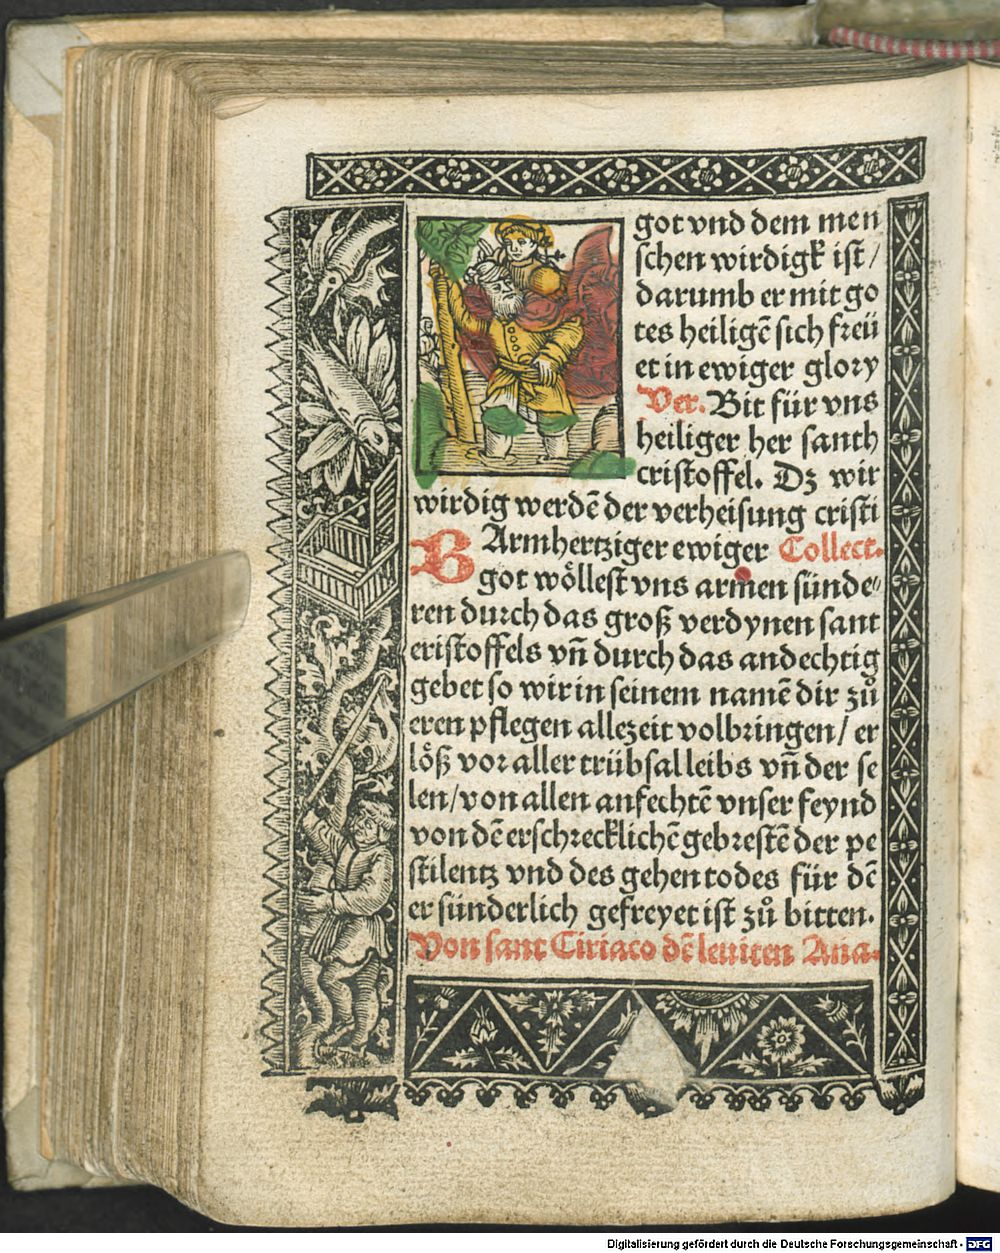 got vnd dem men
schen wirdigk ist /
darumb er mit go
tes heiligē sich freü
et in ewiger glory
Ver. Bit für vns
heiliger her santh
cristoffel. Dz wir
wirdig werdē der verheisung cristi
BArmhertziger ewiger Collect.
got wöllest vns armen sünde⸗
ren durch das groß verdynen sant
cristoffels vn̄ durch das andechtig
gebet so wir in seinem namē dir zů
eren pflegen allezeit volbringen / er
löß vor aller trübsal leibs vn̄ der se
len / von allen anfechtē vnser feynd
von dē erschrecklichē gebrestē der pe
stilentz vnd des gehen todes für dē
er sünderlich gefreyet ist zů bitten.
Von sant Ciriaco dē leuiten Ana.
Digitalisierung gefördert durch die Deutsche Forschungsgemeinschaft - DFG